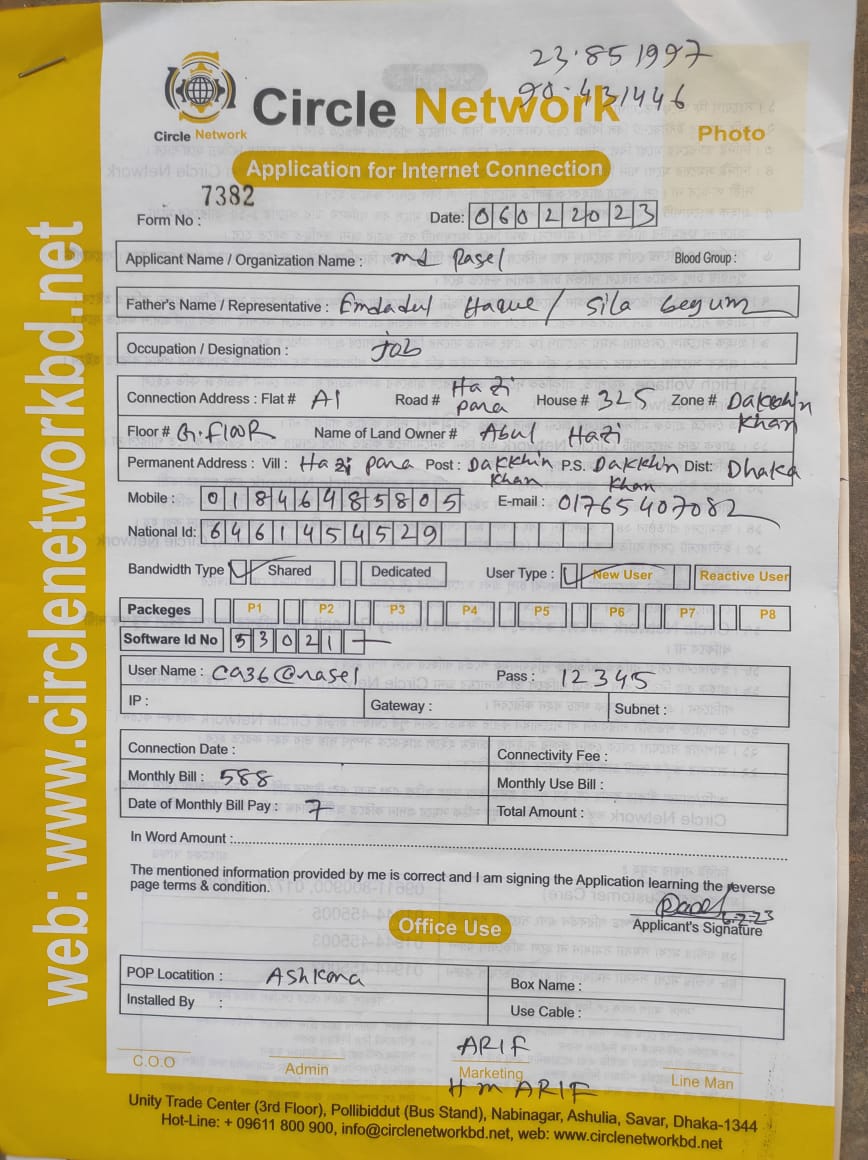 23.851997
90.431446
Circle Network
Circle Network
Photo
Application for Internet Connection
7382
Form No :
Date: 06022023
Applicant Name / Organization Name : md Rasel Blood Group :
Father's Name / Representative : Emdadul Haque / Sila begum
Occupation / Designation : Job
Connection Address : Flat # A1 Road # Hazi para House # 325 Zone # Dakkhin Khan
Floor # G.FlooR Name of Land Owner # Abul Hazi
Permanent Address : Vill : Hazi para Post : Dakkhin Khan P.S. Dakkhin Khan Dist: Dhaka
Mobile : 01846485805 E-mail : 01765407082
National Id: 6461454529
Bandwidth Type Shared Dedicated User Type : New User Reactive User
Packeges P1 P2 P3 P4 P5 P6 P7 P8
Software Id No 53021
User Name : ca36@rasel Pass : 12345
IP : Gateway : Subnet :
Connection Date : Connectivity Fee :
Monthly Bill : 588 Monthly Use Bill :
Date of Monthly Bill Pay : 7 Total Amount :
In Word Amount :
The mentioned information provided by me is correct and I am signing the Application learning the reverse
page terms & condition.
Rasel
6-2-23
Applicant's Signature
Office Use
POP Locatition : Ashkona Box Name :
Installed By : Use Cable :
ARIF
C.O.O Admin Marketing Line Man
H m ARIF
Unity Trade Center (3rd Floor), Pollibiddut (Bus Stand), Nabinagar, Ashulia, Savar, Dhaka-1344
Hot-Line: + 09611 800 900, info@circlenetworkbd.net, web: www.circlenetworkbd.net
web: www.circlenetworkbd.net